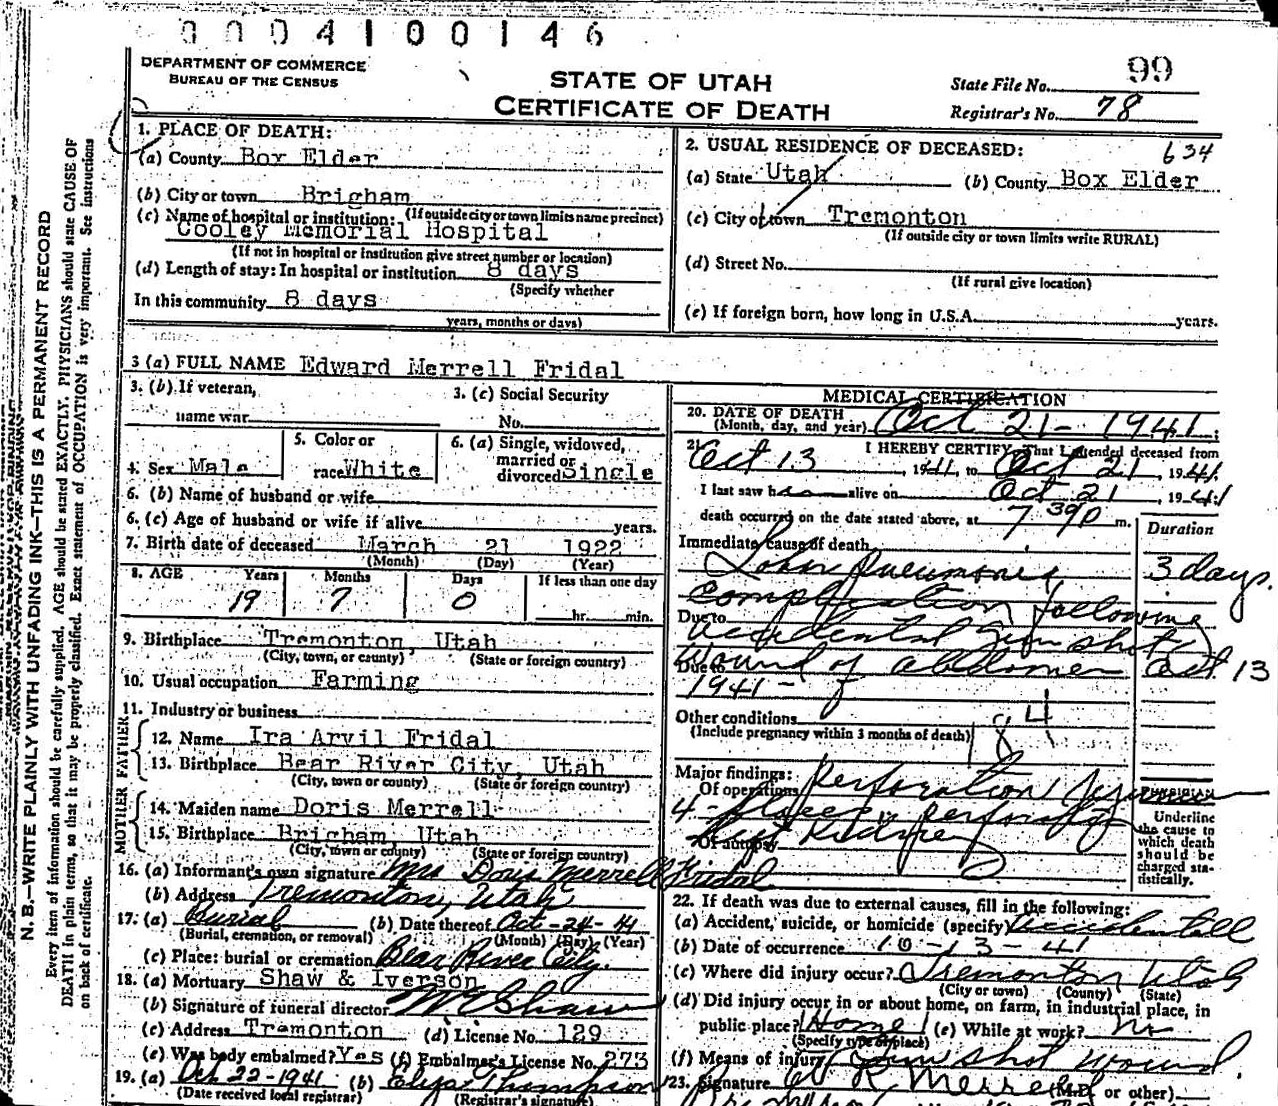 0004100146
DEPARTMENT OF COMMERCE
BUREAU OF THE CENSUS
STATE OF UTAH
CERTIFICATE OF DEATH
99
State File No.
Registrar's No. 78
N. B.—WRITE PLAINLY WITH UNFADING INK—THIS IS A PERMANENT RECORD
Every item of information should be carefully supplied. AGE should be stated EXACTLY. PHYSICIANS should state CAUSE OF
DEATH in plain terms, so that it may be properly classified. Exact statement of OCCUPATION is very important. See instructions
on back of certificate.
1. PLACE OF DEATH:
(a) County Box Elder
(b) City or town Brigham
(If outside city or town limits name precinct)
(c) Name of hospital or institution:
Cooley Memorial Hospital
(If not in hospital or institution give street number or location)
(d) Length of stay: In hospital or institution 8 days
(Specify whether
In this community 8 days
years, months or days)
2. USUAL RESIDENCE OF DECEASED: 634
(a) State Utah (b) County Box Elder
(c) City or town Tremonton
(If outside city or town limits write RURAL)
(d) Street No.
(If rural give location)
(e) If foreign born, how long in U.S.A. years.
3 (a) FULL NAME Edward Merrell Fridal
3. (b) If veteran,
name war
3. (c) Social Security
No.
4. Sex Male
5. Color or
race White
6. (a) Single, widowed,
married or
divorced Single
6. (b) Name of husband or wife
6. (c) Age of husband or wife if alive years.
7. Birth date of deceased March 21 1922
(Month) (Day) (Year)
8. AGE Years Months Days If less than one day
19 7 0 hr. min.
9. Birthplace Tremonton, Utah
(City, town, or county) (State or foreign country)
10. Usual occupation Farming
11. Industry or business
FATHER
12. Name Ira Arvil Fridal
13. Birthplace Bear River City, Utah
(City, town or county) (State or foreign country)
MOTHER
14. Maiden name Doris Merrell
15. Birthplace Brigham, Utah
(City, town or county) (State or foreign country)
16. (a) Informant's own signature Mrs Doris Merrell Fridal
(b) Address Tremonton, Utah
17. (a) Burial (b) Date thereof Oct-24-41
(Burial, cremation, or removal) (Month) (Day) (Year)
(c) Place: burial or cremation Bear River City.
18. (a) Mortuary Shaw & Iverson
(b) Signature of funeral director Shaw
(c) Address Tremonton (d) License No. 129
(e) Was body embalmed? Yes (f) Embalmer's License No. 273
19. (a) Oct 22-1941 (b) Thompson
(Date received local registrar) (Registrar's signature)
MEDICAL CERTIFICATION
20. DATE OF DEATH
(Month, day, and year) Oct 21-1941
21. I HEREBY CERTIFY, That I attended deceased from
Oct 13, 1941, to Oct 21, 1941
I last saw him alive on Oct 21, 1941
death occurred on the date stated above, at 7 30 p m.
Duration
Immediate cause of death
Lobar Pneumonia, 3 days.
Complication following
Due to
accidental gun shot
Due to
wound of abdomen Oct. 13
1941-
Other conditions
(Include pregnancy within 3 months of death)
Major findings:
Of operations perforation
4-places perforating
Of autopsy
left Kidney
PHYSICIAN
Underline
the cause to
which death
should be
charged sta-
tistically.
22. If death was due to external causes, fill in the following:
(a) Accident, suicide, or homicide (specify) Accidentall
(b) Date of occurrence 10-13-41
(c) Where did injury occur? Tremonton Utah
(City or town) (County) (State)
(d) Did injury occur in or about home, on farm, in industrial place, in
public place? Home (e) While at work? No
(Specify type of place)
(f) Means of injury Gun shot wound.
23. Signature R Merrell (M.D. or other)